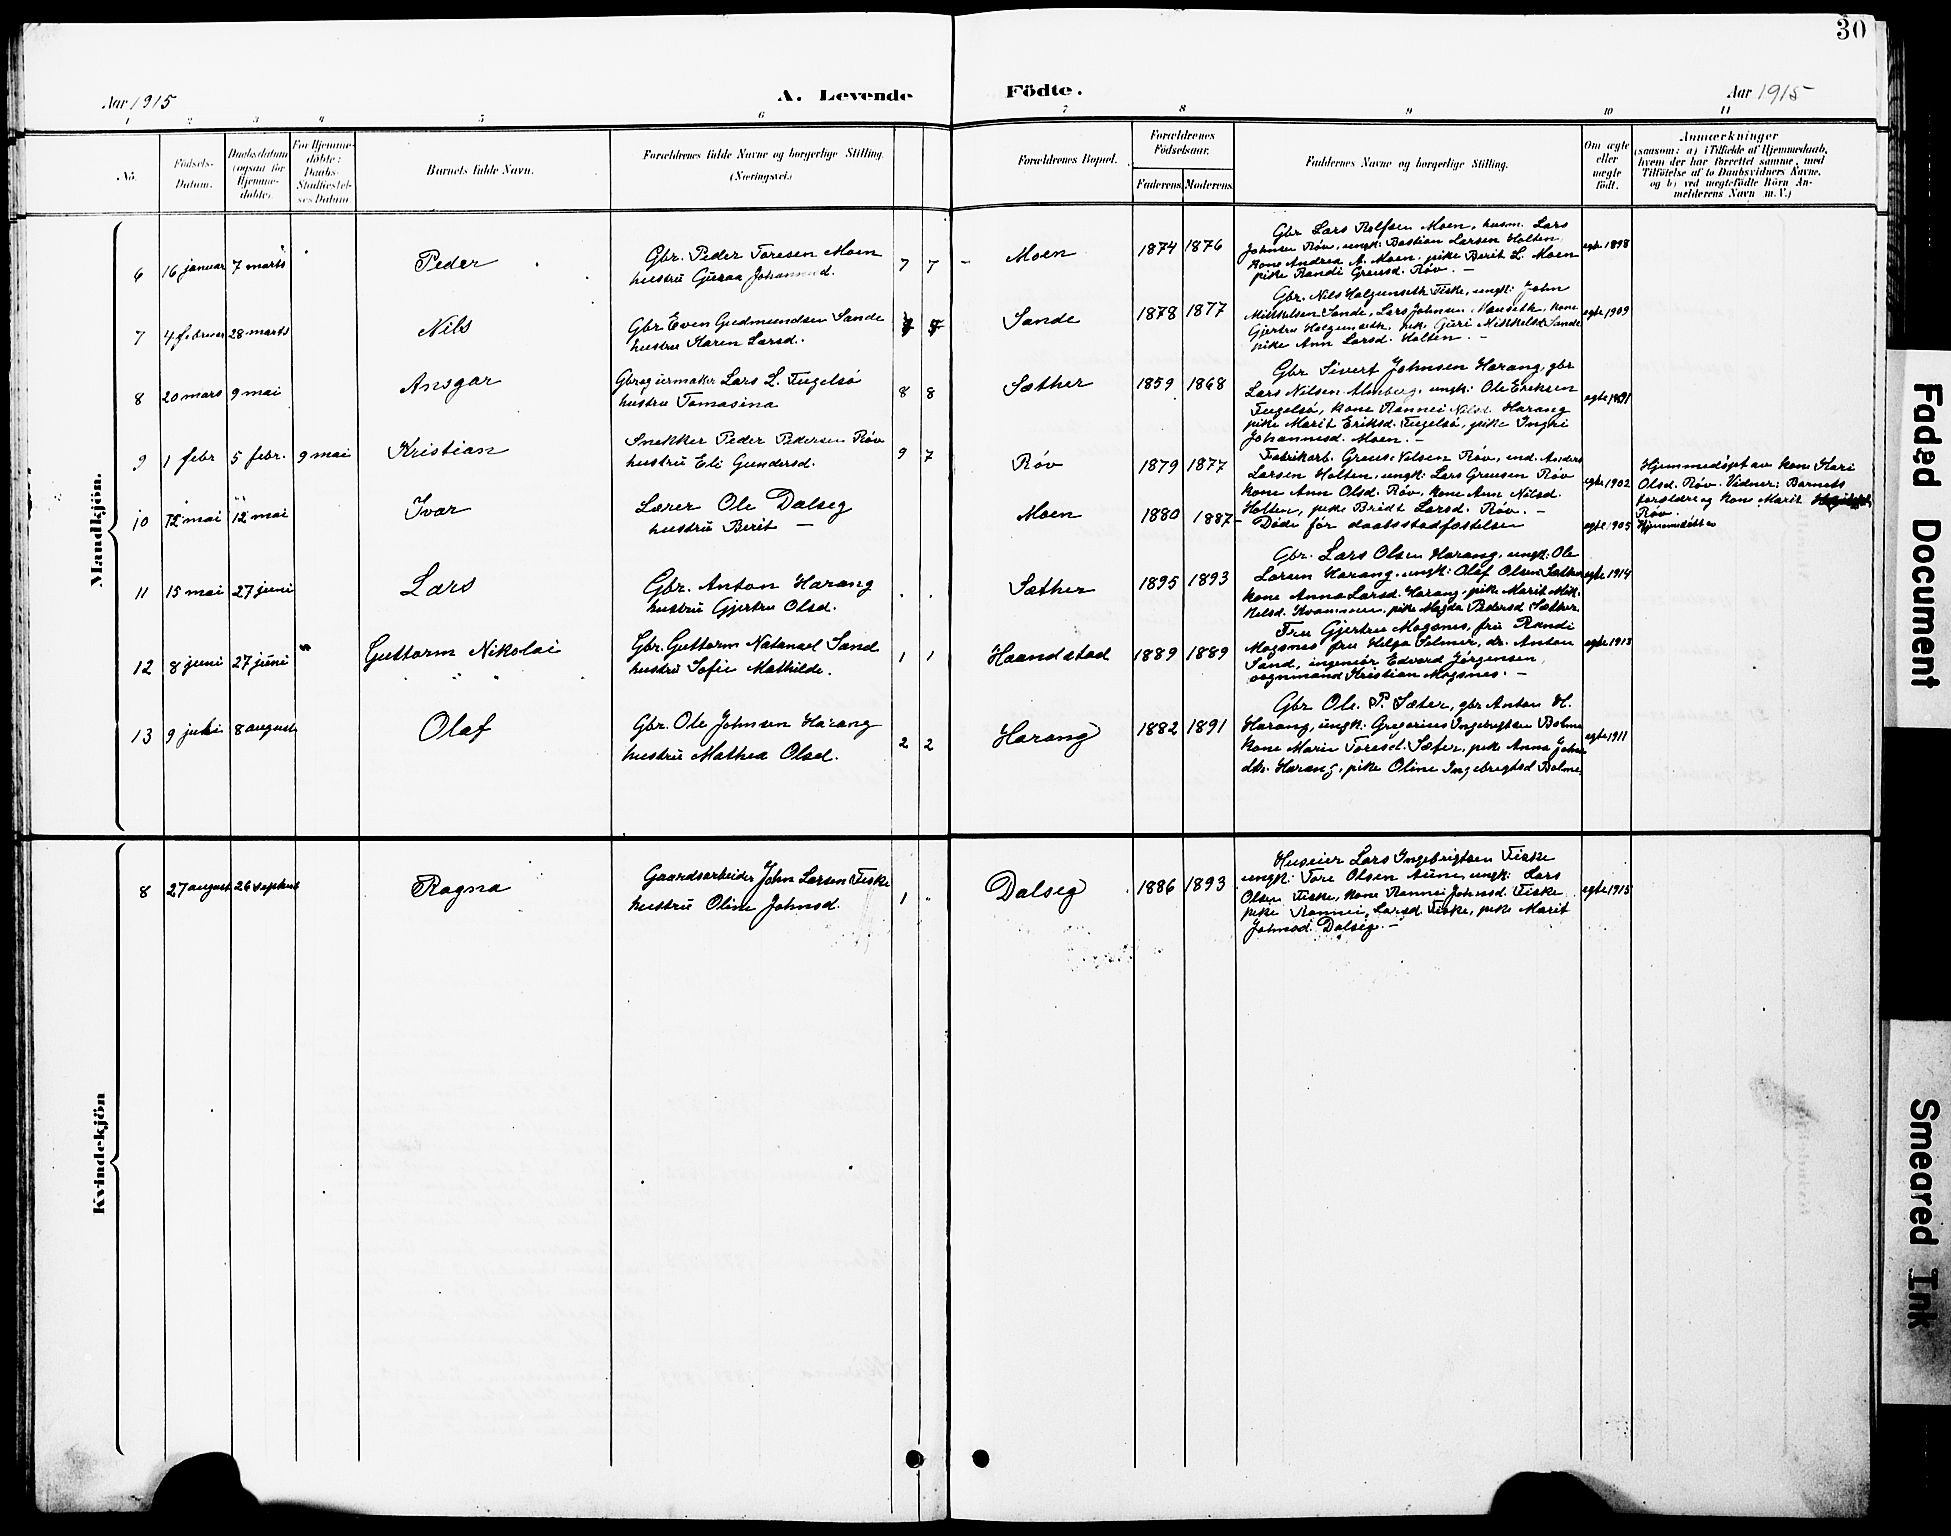 30
Aar 1915
A. Levende Födte.
Aar 1915
1 2 3 4 5 6 7 8 9 10 11
No.
Födsels-
Datum.
Daabsdatum
(ogsaa for
Hjemme-
döbte).
For Hjemme-
döbte:
Daabs-
Stadfæstel-
ses Datum
Barnets fulde Navn.
Forældrenes fulde Navne og borgerlige Stilling.
(Næringsvei.)
Forældrenes Bopæl.
Forældrenes
Födselsaar.
Faderens. Moderens.
Faddernes Navne og borgerlige Stilling.
Om ægte
eller
uægte
födt.
Anmærkninger
(saasom: a) i Tilfælde af Hjemmedaab,
hvem der har forrettet samme, med
Tilföielse af to Daabsvidners Navne,
og b) ved uegtefödte Börn An-
melderens Navn m. V.)
Mandkjön.
6 16 januar 7 marts
Peder
Gbr. Peder Toresen Moen
hustru Guraa Johannesd.
7 7
Moen
1874 1876
Gbr Lars Rolfsen Moen, husm. Lars
Johnsen Røv, ungk: Bastian Larsen Holten
kone Andrea A. Moen, pike Berit L. Moen
pike Randi Greusd. Røv. —
egte 1898
7 4 februar 28 marts
Nils
Gbr Even Gudmundsen Sande
hustru Karen Larsd.
Sande
1878 1877
Gbr. Nils Halgunseth Fiske, ungk: John
Mikkelsen Sande, Lars Johnsen Hauseth, kone
Gjertru Halgunseth, pik. Guri Mikkelsd Sande
pike Ann Larsd. Holten. —
egte 1909
8 20 mars 9 mai
Ansgar
Gbr og urmaker Lars L. Fugelsö
hustru Tomasina
8 8
Sæther
1859 1868
Gbr Sivert Johnsen Harang, gbr
Lars Nilsen Almberg, ungk: Ole Eriksen
Fugelsö, kone Rannei Nilsd. Harang
pike Marit Eriksd. Fugelsö, pike Ingri
Johannesd. Moen. —
egte 1891
9 1 febr 5 febr. 9 mai
Kristian
Snekker Peder Pedersen Røv
hustru Eli Gundersd.
9 7
Røv
1879 1877
Fabrikarb. Greus Nilsen Røv, ind. Anders
Larsen Holten, ungk: Lars Greusen Røv
kone Ann Olsd. Røv, kone Ann Nilsd.
Holten, pike Bridt Larsd. Røv. —
egte 1902
Hjemmedøpt av kone Kari
Olsd. Røv. Vidner: Barnets
forældre og kone Marit
Røv.
10 12 mai 12 mai
Ivar
Lærer Ole Dalseg
hustru Berit —
Moen
1880 1887
Døde før daabsstadfæstelsen
egte 1905
Hjemmedøbt
11 15 mai 27 juni
Lars
Gbr. Anton Harang
hustru Gjertru Olsd.
Sæther
1895 1893
Gbr. Lars Olsen Harang, ungk: Ole
Larsen Harang, ungk: Olaf Olsen Sæther
kone Anna Larsd. Harang, pike Marit Mik-
kelsd. Kvammen, pike Magda Pedersd Sæther.
egte 1914
12 8 juni 27 juni
Guttorm Nikolai
Gbr. Guttorm Natanael Sand
hustru Sofie Mathilde.
1 1
Haandstad
1889 1889
Fru Gjertru Mogsnes, fru Randi
Mogsnes fru Helga Solmer, dr. Anton
Sand, ingeniör Edvard Jørgensen,
vognmand Kristian Mogsnes. —
egte 1913
13 9 juli 8 august
Olaf
Gbr. Ole Johnsen Harang
hustru Mathea Olsd.
2 2
Harang
1882 1891
Gbr Ole P. Sæter, gbr Anton H.
Harang, ungk. Gregorius Ingebrigtsen Bolme
kone Marie Toresd. Sæter, pik Anna Johns
dtr. Harang, pike Oline Ingebrigtsd Bolme.
egte 1911
Kvindekjön
8 27 august 26 septemb
Ragna
Gaardsarbeider John Larsen Fiske
hustru Oline Johnsd.
1
Dalseg
1886 1893
Huseier Lars Ingebrigtsen Fiske
ungk: Tore Olsen Aune, ungk: Lars
Olsen Fiske, kone Rannei Johnsd. Fiske
pike Rannei Larsd. Fiske, pike Marit
Johnsd. Dalseg. —
egte 1915
Faded Document
Smeared Ink